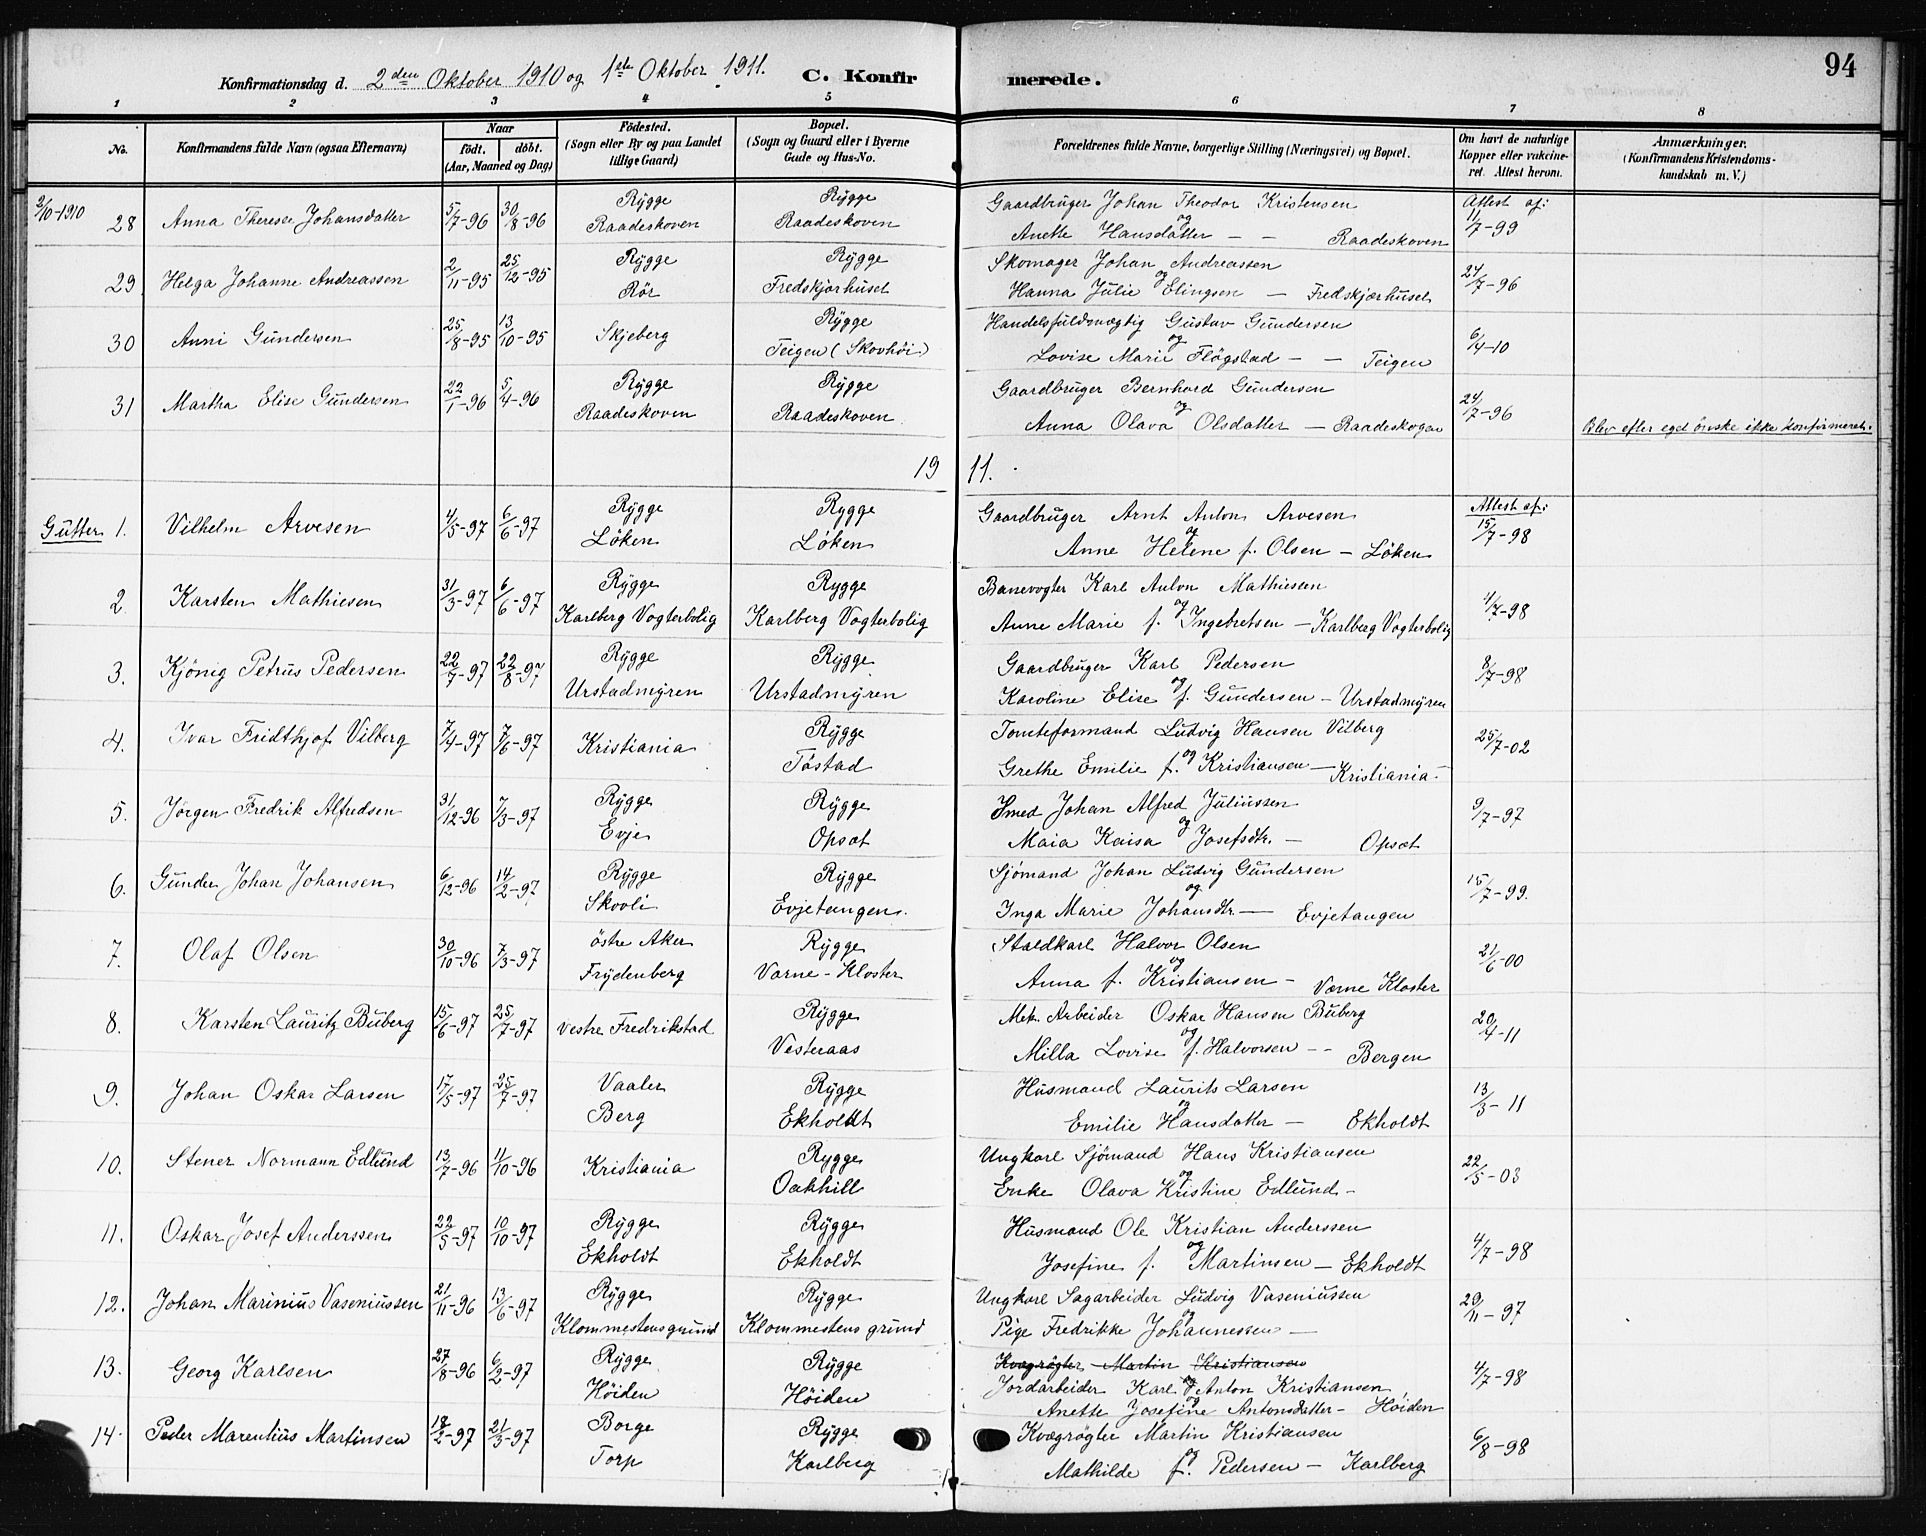 94
Konfirmationsdag d. 2den Oktober 1910 og 1ste Oktober 1911. C. Konfirmerede.
1 2 3 4 5 6 7 8
No. Konfirmandens fulde Navn (ogsaa Efternavn) Naar født. døbt. (Aar, Maaned og Dag) Fødested. (Sogn eller By og paa Landet tillige Gaard) Bopæl. (Sogn og Gaard eller i Byerne Gade og Hus-No. Forældrenes fulde Navne, borgerlige Stilling (Næringsvei) og Bopæl. Om havt de naturlige Kopper eller vakcineret. Attest herom. Anmærkninger. (Konfirmandens Kristendomskundskab m. V.)
2/10-1910 Rygge Rygge Gaardbruger Johan Theodor Kristensen Attest af:
28 Anna Therese Johansdatter 5/7-96 30/8-96 Raadeskoven Raadeskoven og Anette Hansdatter - - Raadeskoven 11/7-99
Rygge Rygge Skomager Johan Andreassen
29 Helga Johanne Andreassen 2/11-95 25/12-95 Rör Fredskjærhuset og Hanna Julie Elingsen - Fredskjærhuset 24/7-96
Rygge Handelsfuldmægtig Gustav Gundersen
30 Anni Gundersen 25/8-95 13/10-95 Skjeberg Teigen (Skovhöi) og Lovise Marie Flögstad - - Teigen 6/4-10
Rygge Rygge Gaardbruger Bernhard Gundersen
31 Martha Elise Gundersen 22/1-96 5/4-96 Raadeskoven Raadeskoven og Anna Olava Olsdatter - Raadeskogen 24/7-96 Blev efter eget önske ikke konfirmeret.
1911.
Rygge Rygge Gaardbruger Arnt Anton Arvesen Attest af:
Gutter 1. Vilhelm Arvesen 4/5-97 6/6-97 Löken Löken og Anne Helene f. Olsen - Löken 15/7-98
Rygge Rygge Banevogter Karl Anton Mathiesen
2. Karsten Mathiesen 31/3-97 6/6-97 Karlberg Vogterbolig Karlberg Vogterbolig og Anne Marie f. Ingebretsen - Karlberg Vogterbolig 4/7-98
Rygge Rygge Gaardbruger Karl Pedersen
3. Kjönig Petrus Pedersen 22/7-97 22/8-97 Urstadmyren Urstadmyren og Karoline Elise f. Gundersen - Urstadmyren 8/7-98
Rygge Tomteformand Ludvig Hansen Vilberg
4. Ivar Fridthjof Vilberg 7/4-97 7/6-97 Kristiania Töstad og Grethe Emilie f. Kristiansen - Kristiania 25/7-02
Rygge Rygge Smed Johan Alfred Juliussen
5. Jörgen Fredrik Alfredsen 31/12-96 7/3-97 Evje Opsat og Maia Kaisa Josefsdtr. - Opsat 9/7-97
Rygge Rygge Sjömand Johan Ludvig Gundersen
6. Gunder Johan Johansen 6/12-96 14/2-97 Skovli Evjetangen. og Inga Marie Johansdtr. - Evjetangen 15/7-99.
östre Aker Rygge Staldkarl Halvor Olsen
7. Olaf Olsen 30/10-96 7/3-97 Frydenberg Varne-Kloster og Anna f. Kristiansen - Værne Kloster 21/6-00
Rygge Mek. Arbeider Oskar Hansen Buberg
8. Karsten Lauritz Buberg 15/6-97 25/7-97 Vestre Fredrikstad Vesteraas og Milla Lovise f. Halvorsen - - Bergen 20/4-11
Vaaler Rygge Husmand Laurits Larsen
9. Johan Oskar Larsen 17/5-97 25/7-97 Berg Ekholdt og Emilie Hansdatter - Ekholdt 13/3-11
Rygge Ungkarl Sjömand Hans Kristiansen
10. Stener Normann Edlund 13/7-96 11/10-96 Kristiania Oakhill og Enke Olava Kristine Edlund - 22/5-03
Rygge Rygge Husmand Ole Kristian Anderssen
11. Oskar Josef Anderssen 22/5-97 10/10-97 Ekholdt Ekholdt og Josefine f. Martinsen - Ekholdt 4/7-98
Rygge Rygge Ungkarl Sagarbeider Ludvig Vaseniussen
12. Johan Marinius Vaseniussen 21/11-96 13/6-97 Klommestensgrund Klommestens grund og Pige Fredrikke Johannessen - 29/11-97
Rygge Rygge Kvægrögter Martin Kristiansen
13. Georg Karlsen 27/8-96 6/2-97 Höiden Höiden Jordarbeider Karl Anton Kristiansen 4/7-98
og Anette Josefine Antonsdatter - Höiden
Borge Rygge Kvægrögter Martin Kristiansen
14. Peder Marentius Martinsen 18/2-97 21/3-97 Torp Karlberg og Mathilde f. Pedersen - Karlberg 6/8-98